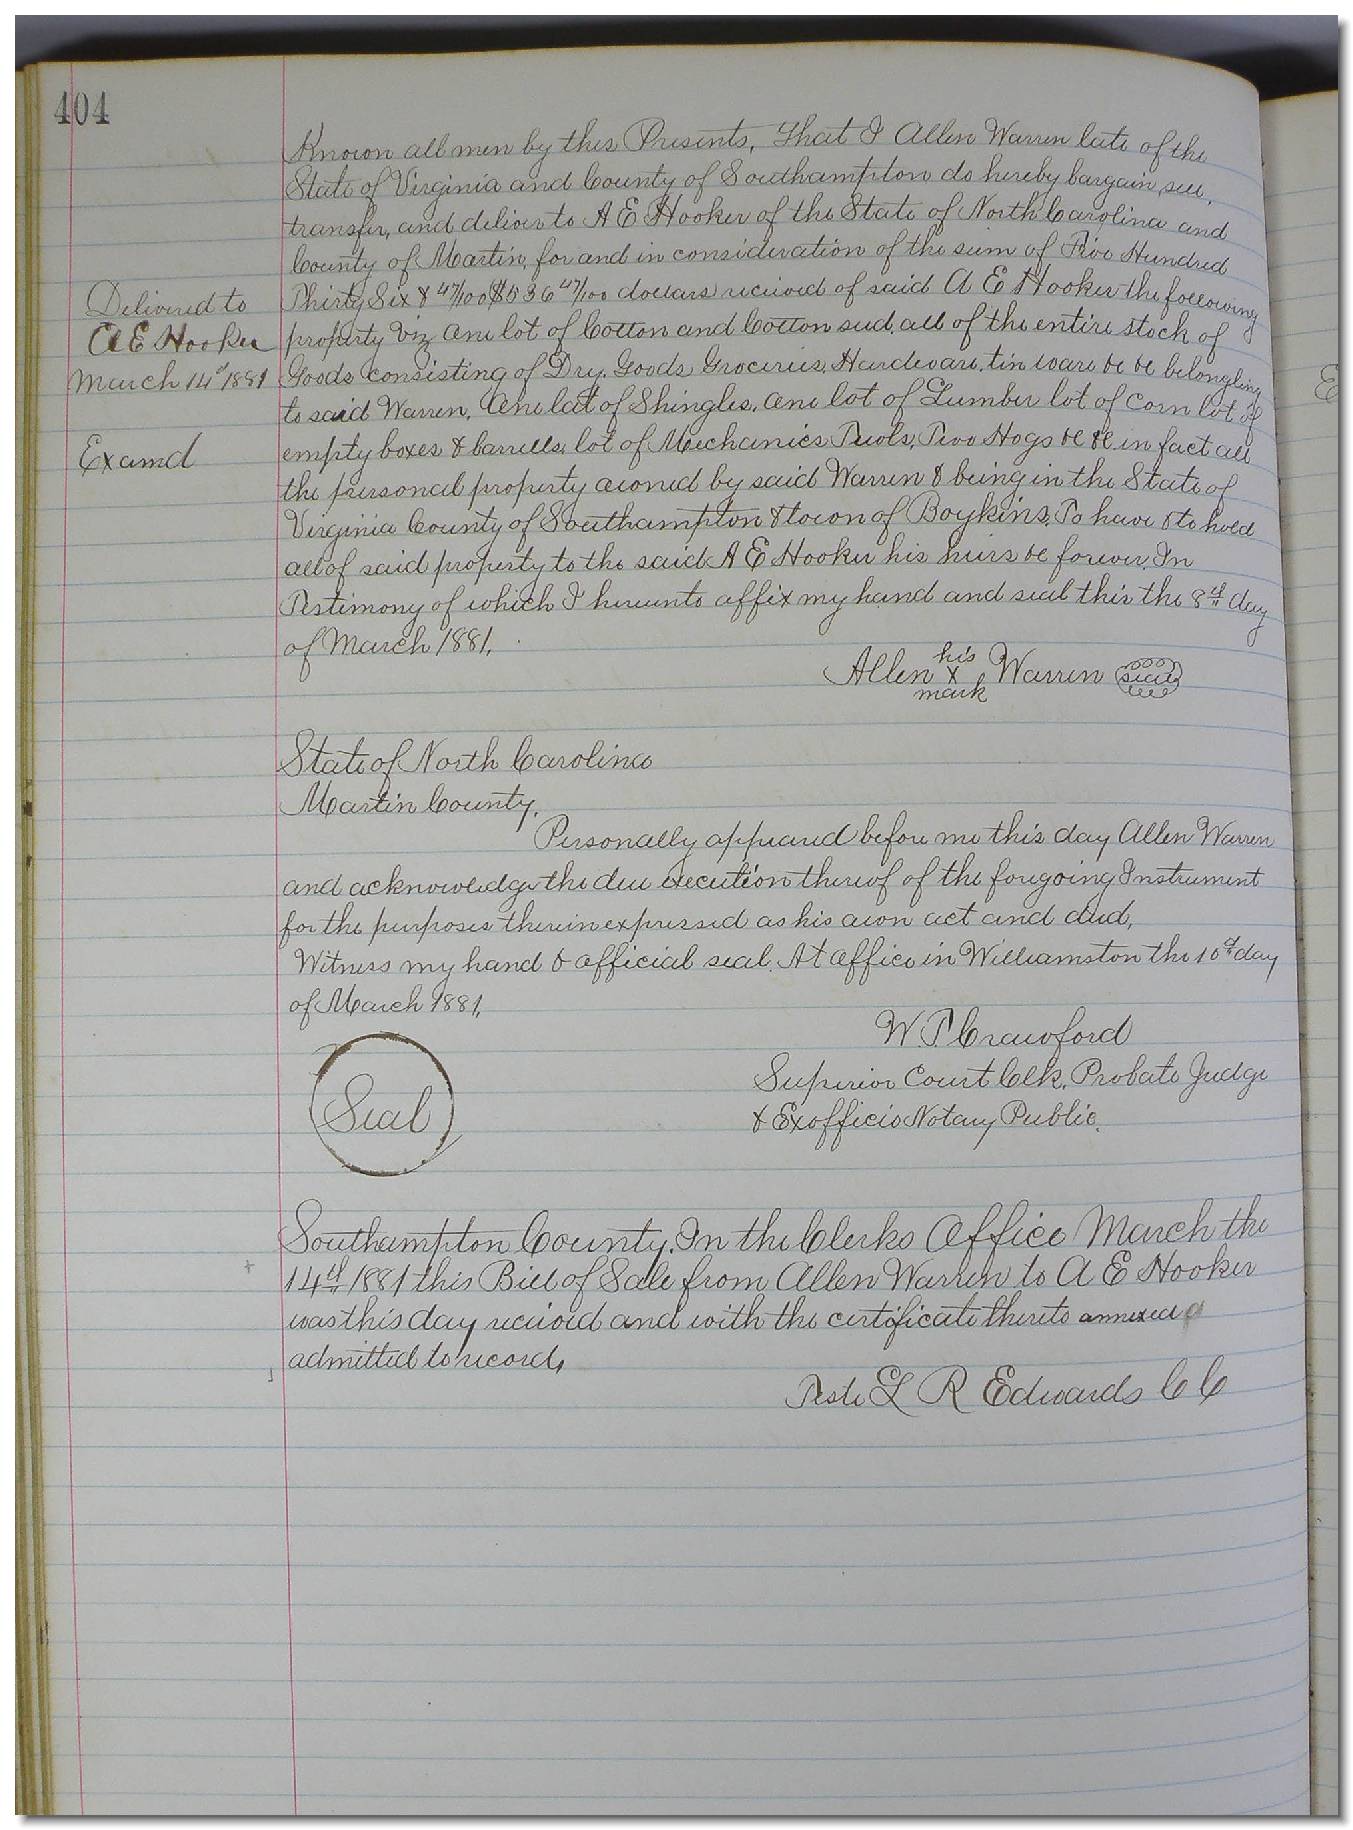 404
Known all men by thes Presents, That I Allen Warren late of the
State of Virginia and County of Southampton do hereby bargain, sell,
transfer, and deliver to A E Hooker of the State of North Carolina and
County of Martin, for and in consideration of the sum of Five Hundred
Thirty Six & 47/100, $536 47/100 dollars received of said A E Hooker the following
property Viz One lot of Cotton and Cotton seed, all of the entire stock of
Goods consisting of Dry. Goods Groceries, Hardware, tin ware &c &c belonging
to said Warren, One lot of Shingles, One lot of Lumber lot of Corn lot of
empty boxes & barrells, lot of Mechanics Tools, Two Hogs &c &c in fact all
the personal property owned by said Warren & being in the State of
Virginia County of Southampton & town of Boykins, To have & to hold
all of said property to the said A E Hooker his heirs &c forever, In
Testimony of which I hereunto affix my hand and seal this the 8th day
of March 1881.
Allen his x mark Warren seal
Delivered to
A E Hooker
March 14th 1881
Examd
State of North Carolina
Martin County,
Personally appeared before me this day Allen Warren
and acknowledge the due execution thereof of the foregoing Instrument
for the purposes therein expressed as his own act and deed,
Witness my hand & official seal. At office in Williamston the 10th day
of March 1881,
W. P. Crawford
Superior Court Clk, Probate Judge
& Exofficio Notary Public.
Seal
Southampton County, In the Clerks Office March the
14th 1881 this Bill of Sale from Allen Warren to A E Hooker
was this day received and with the certificate thereto annexed
admitted to record,
Teste L R Edwards C C
E